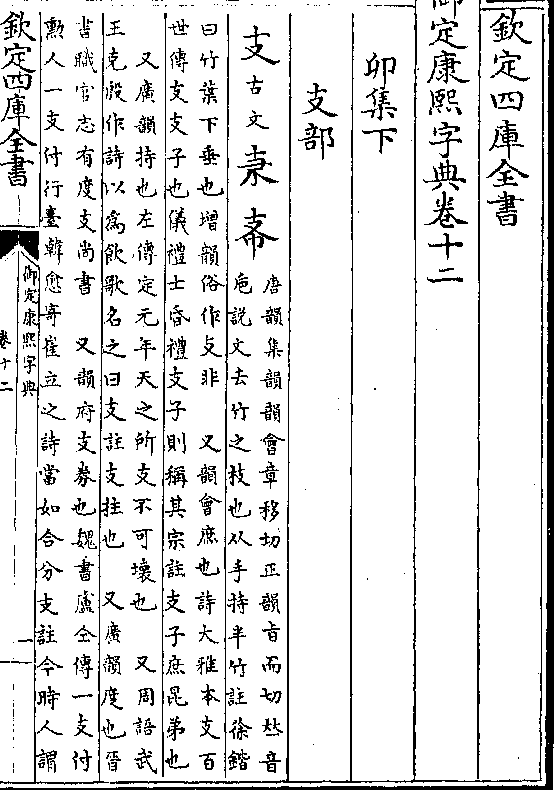 欽定四庫全書
御定康熙字典卷十二
卯集下
支部
支古文𠦙𢺶
唐韻集韻韻會章移切正韻旨而切𠀤音
巵說文去竹之枝也从手持半竹註徐鍇
曰竹葉下垂也增韻俗作攴非　又韻會庶也詩大雅本支百
世傳支支子也儀禮士昏禮支子則稱其宗註支子庶昆弟也
又廣韻持也左傳定元年天之所支不可壞也　又周語武
王克殷作詩以爲飲歌名之曰支註支拄也　又廣韻度也晉
書職官志有度支尚書　又韻府支券也魏書盧仝傳一支付
勲人一支付行臺韓愈寄崔立之詩當如合分支註今時人謂
欽定四庫全書
御定康熙字典
卷十二
一